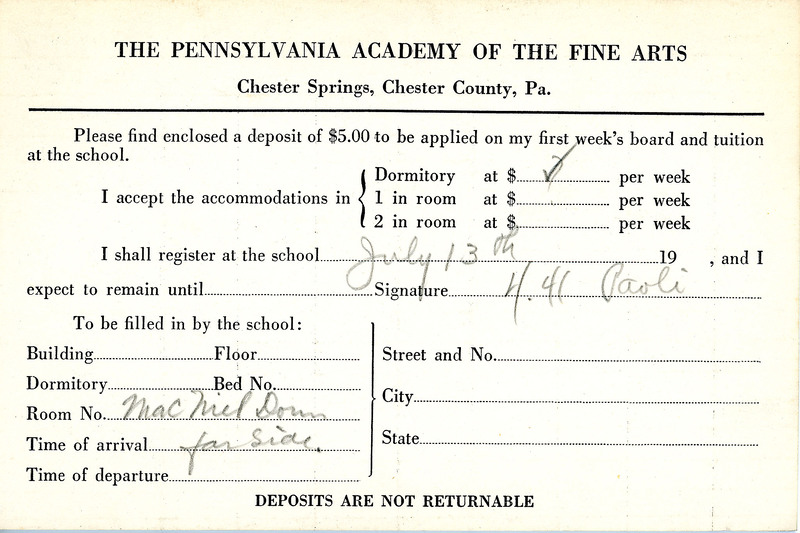 THE PENNSYLVANIA ACADEMY OF THE FINE ARTS
Chester Springs, Chester County, Pa.
Please find enclosed a deposit of $5.00 to be applied on my first week's board and tuition
at the school.
I accept the accommodations in
Dormitory at $ ✓ per week
1 in room at $ per week
2 in room at $ per week
I shall register at the school July 13th 19 , and I
expect to remain until Signature 4.41 Paoli
To be filled in by the school:
Building Floor
Dormitory Bed No.
Room No. Mac Niel Dorm
Time of arrival far side.
Time of departure
Street and No.
City
State
DEPOSITS ARE NOT RETURNABLE